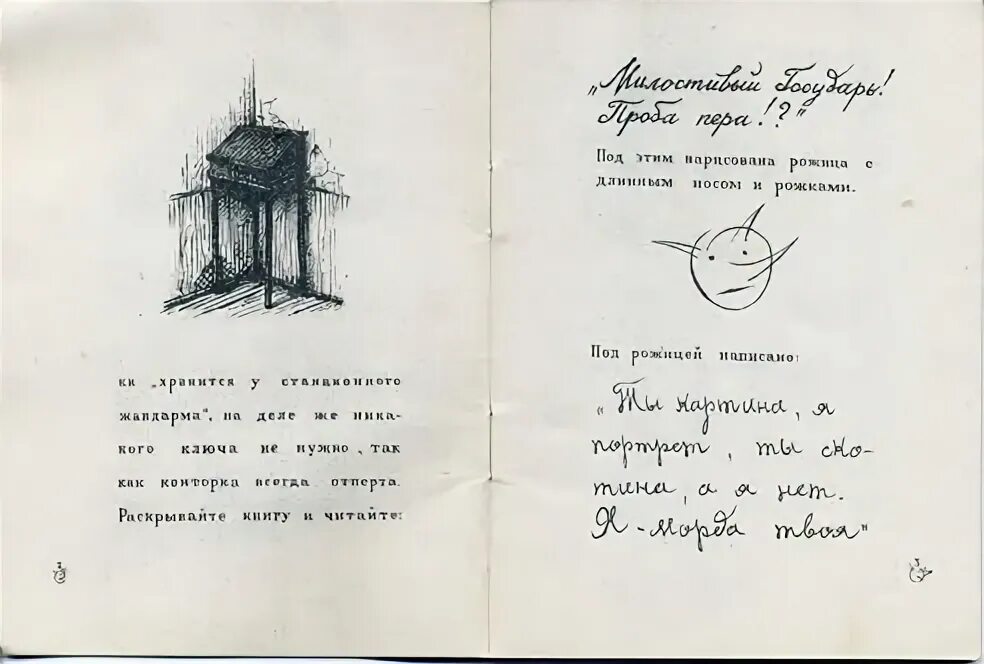 ки „хранится у станционного
жандарма", на деле же ника-
кого ключа не нужно, так
как конторка всегда отперта.
Раскрывайте книгу и читайте:
„Милостивый Государь!
Проба пера!?"
Под этим нарисована рожица с
длинным носом и рожками.
Под рожицей написано:
„Ты картина, я
портрет, ты ско-
тина, а я нет.
Я - морда твоя"